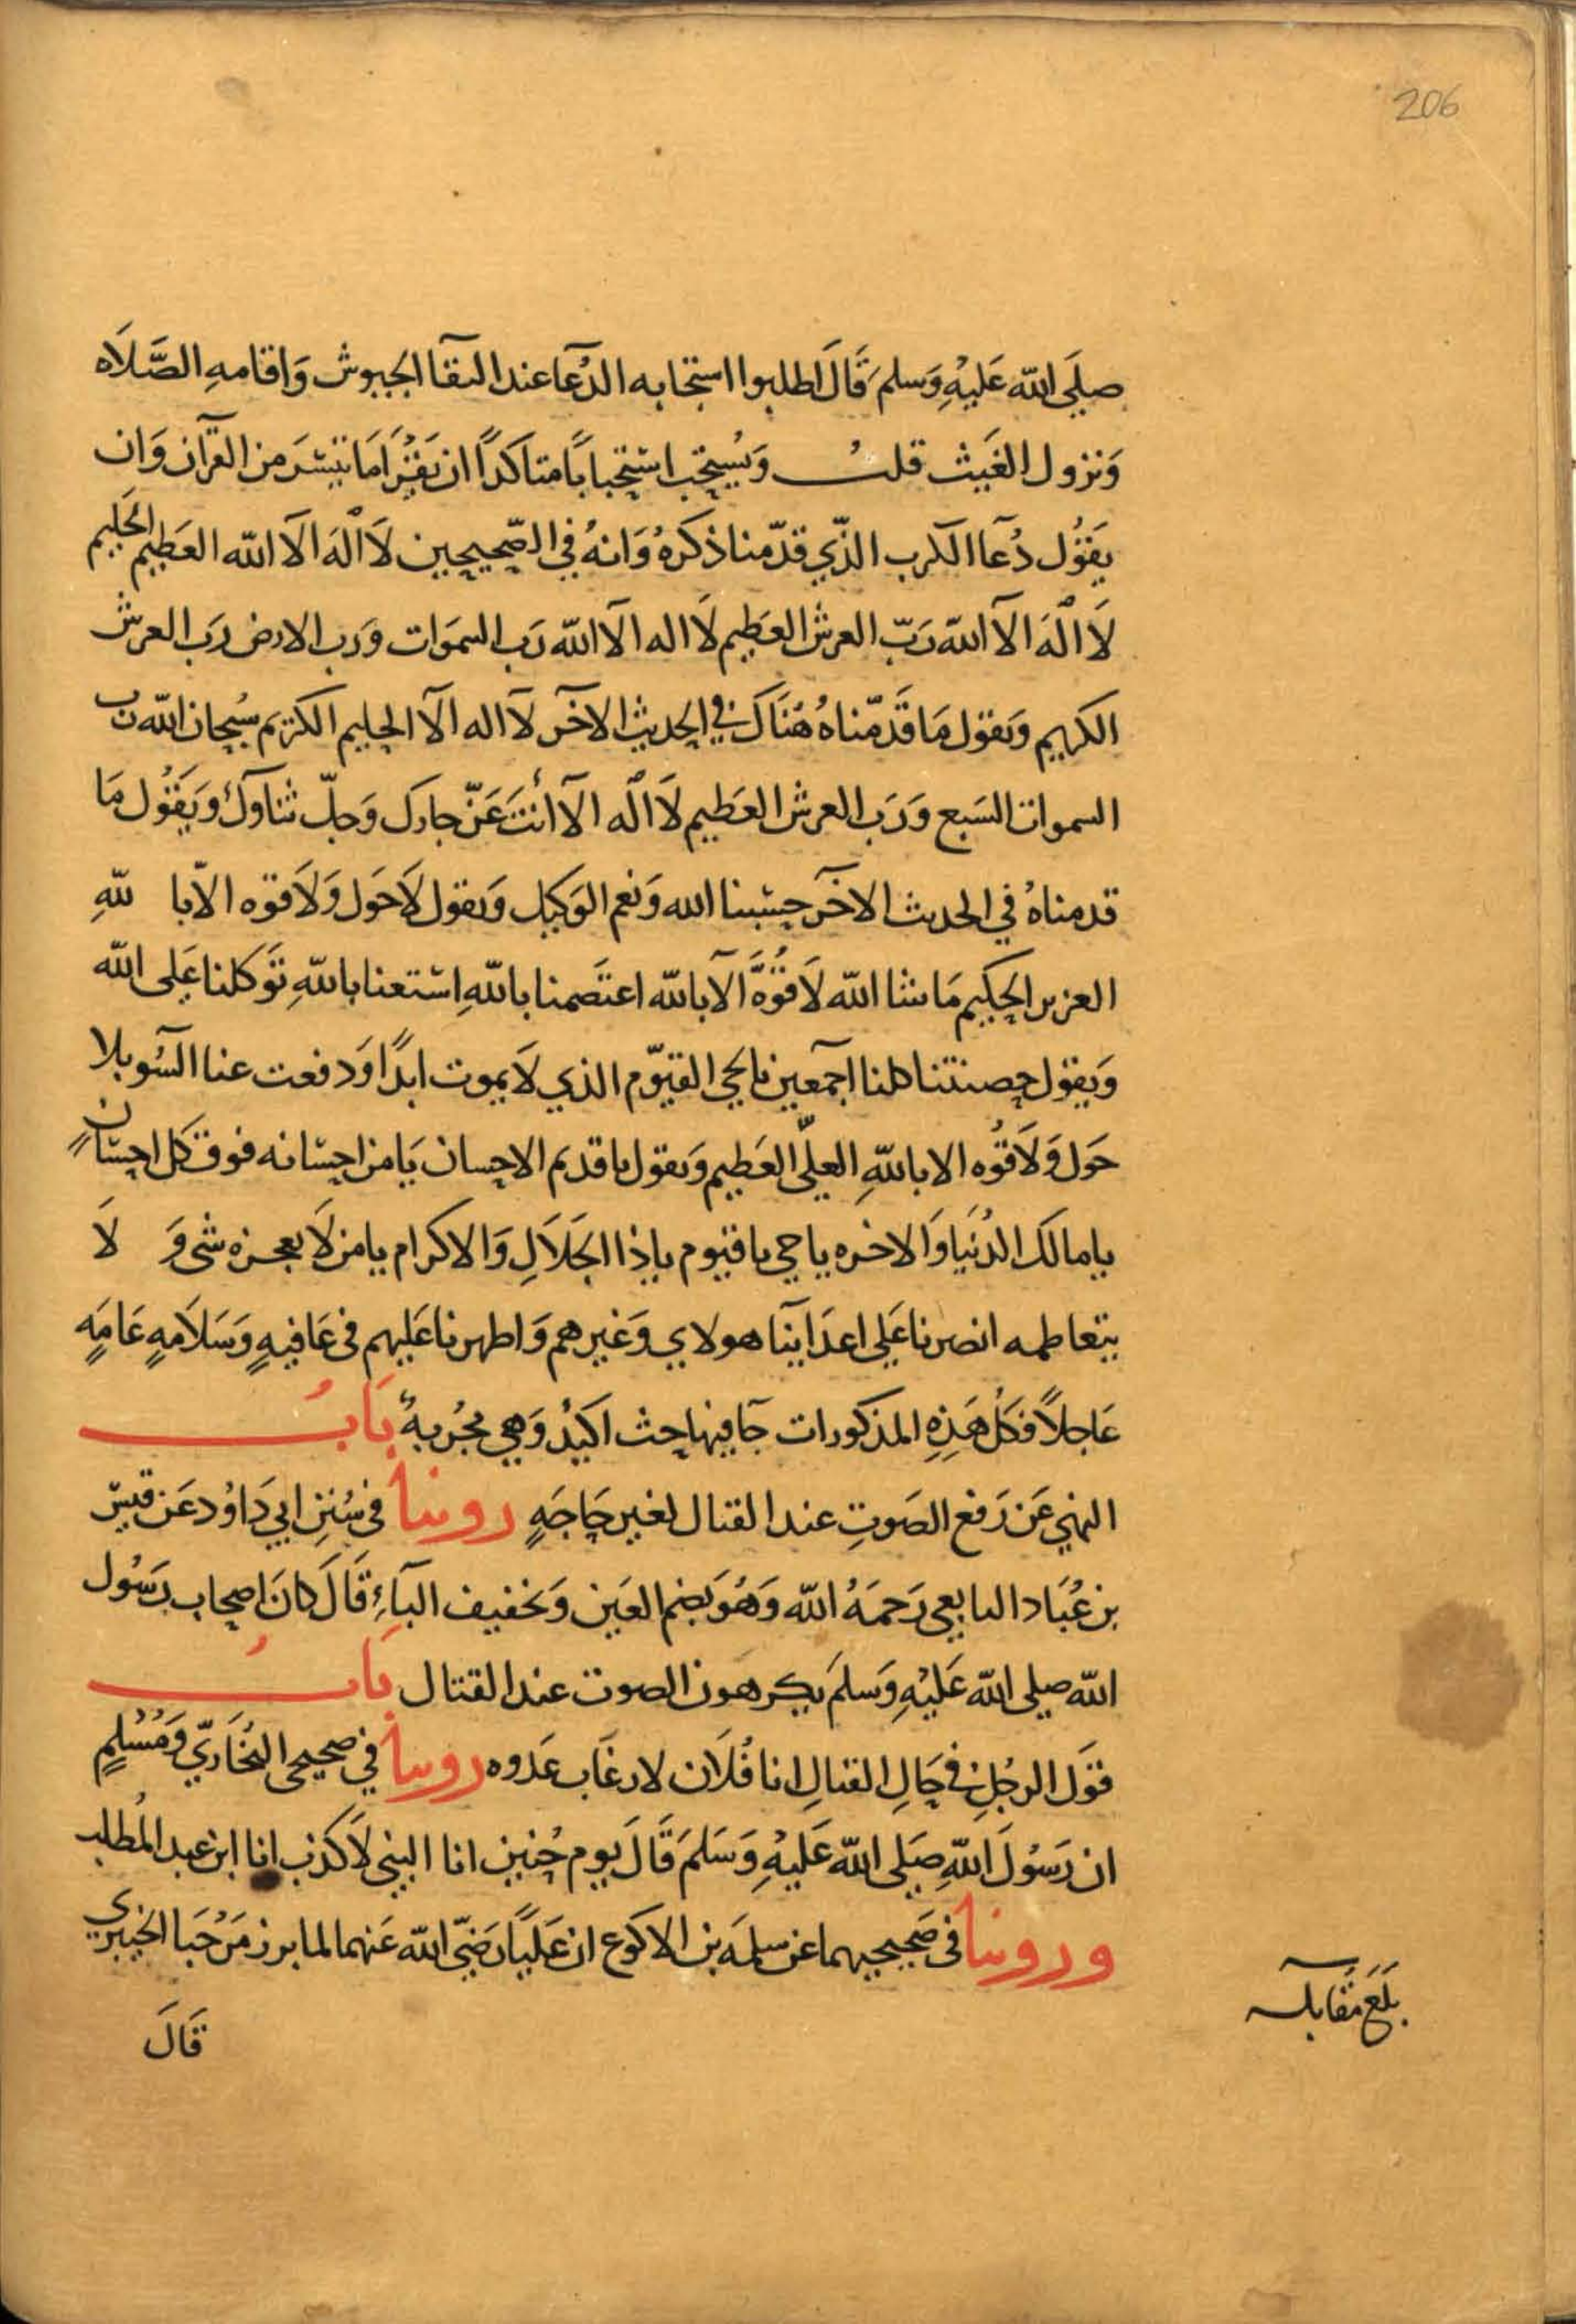 206
صلى الله عليه وسلم قال اطلبوا استجابه الدعا عند التقا الجيوش واقامه الصلاه
ونزول الغيث قلت ويستحب استحبابا متاكدا ان يقرا ما تيسر من القرآن وان
يقول دعآ الكرب الذي قدمنا ذكره وانه في الصحيحين لا اله الا الله العظيم الحليم
لا اله الا الله رب العرش العظيم لا اله الا الله رب السموات ورب الارض رب العرش
الكريم ويقول ما قدمناه هناك في الحديث الآخر لا اله الا الحليم الكريم سبحان الله رب
السموات السبع ورب العرش العظيم لا اله الا انت عز جارك وجل ثناوك ويقول ما
قدمناه في الحديث الآخر حسبنا الله ونعم الوكيل ويقول لا حول ولا قوه الا با لله
العزيز الحكيم ما شا الله لا قوة الا بالله اعتصمنا بالله استعنا بالله توكلنا على الله
ويقول حصنتنا كلنا اجمعين بالحي القيوم الذي لا يموت ابدا ودفعت عنا السو بلا
حول ولا قوه الا بالله العلي العظيم ويقول يا قديم الاحسان يا من احسانه فوق كل احسان
يا مالك الدنيا والاخره يا حي يا قيوم يا ذا الجلال والاكرام يا من لا يعجزه شى و لا
يتعاظمه انصرنا على اعداينا هولاي وغيرهم واظهرنا عليهم في عافيه وسلامه عامه
عاجلا فكل هذه المذكورات جا فيها حث اكيد وهي مجربه باب
النهي عن رفع الصوت عند القتال لغير حاجه روينا في سنن ابي داود عن قيس
بن عباد التابعي رحمه الله وهو بضم العين وتخفيف البآء قال كان اصحاب رسول
الله صلى الله عليه وسلم يكرهون الصوت عند القتال باب
قول الرجل في حال القتال انا فلان لارعاب عدوه روينا في صحيحى البخاري ومسلم
ان رسول الله صلى الله عليه وسلم قال يوم حنين انا النبي لا كذب انا ابن عبد المطلب
وروينا في صحيحيهما عن سلمه بن الاكوع ان عليا رضي الله عنهما لما بارز مرحبا الخيبري
قال
بلغ مقابله